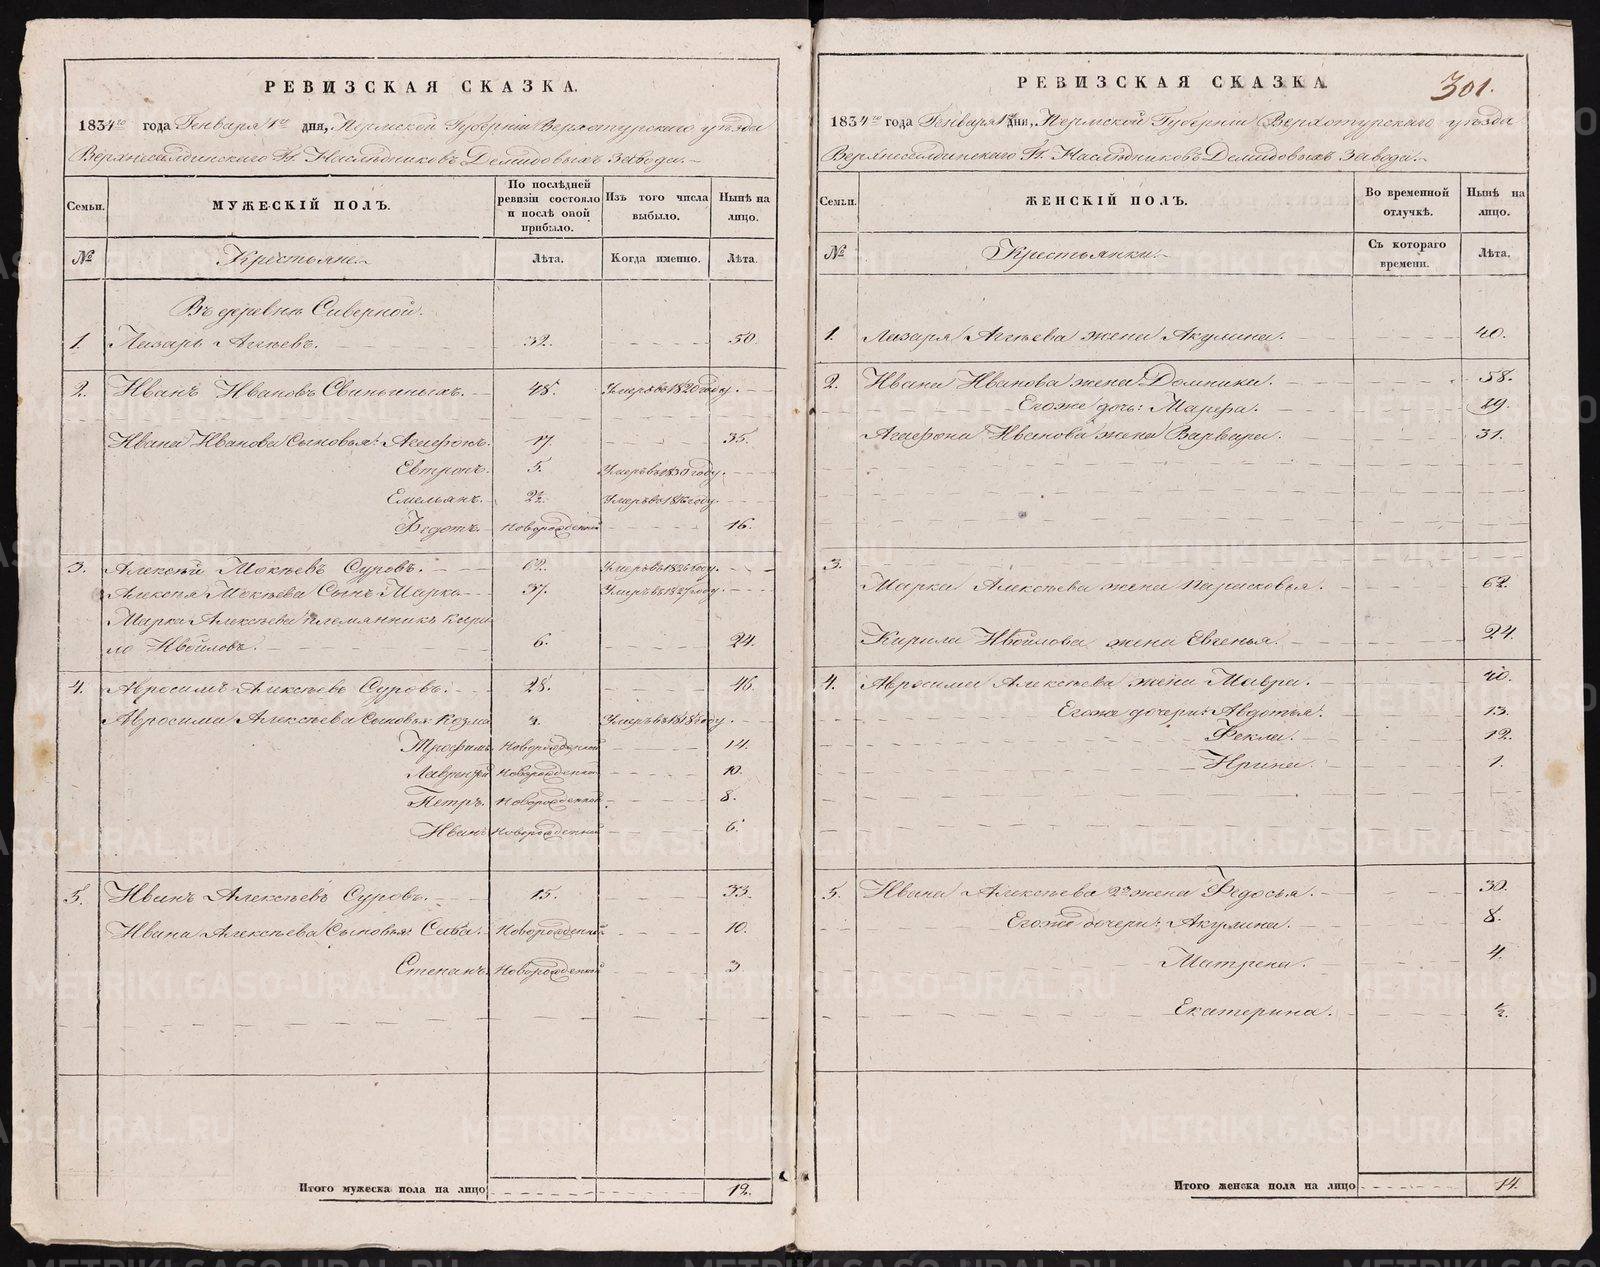 РЕВИЗСКАЯ СКАЗКА.
1834го года Генваря 1го дня, Пермской Губерніи Верхотурскаго уѣзда
Верхнесалдинскаго Гг. Наслѣдниковъ Демидовыхъ завода.
Семьи. МУЖЕСКІЙ ПОЛЪ. По послѣдней ревизіи состояло и послѣ оной прибыло. Изъ того числа выбыло. Нынѣ на лицо.
№ Крестьяне. Лѣта. Когда именно. Лѣта.
Въ деревнѣ Сиверной.
1. Лазарь Агѣевъ. 32. 50.
2. Иванъ Ивановъ Свиньиныхъ. 48. Умеръ въ 1820 году.
Ивана Иванова Сыновья: Агафонъ. 17. 35.
Евтропъ. 5. Умеръ въ 1830 году.
Емельянъ. 2½. Умеръ въ 1816 году.
Ѳедотъ. Новорожденной 16.
3. Алексѣй Мокѣевъ Суровъ. 62. Умеръ въ 1826 году.
Алексѣя Мокѣева Сынъ Марко 37. Умеръ въ 1827 году.
Марка Алексѣева племянникъ Кири
ло Ивойловъ. 6. 24.
4. Авросимъ Алексѣевъ Суровъ. 28. 46.
Авросима Алексѣева Сыновья: Козма 4. Умеръ въ 1818 году.
Трофимъ Новорожденной 14.
Лаврентій Новорожденной 10.
Петръ. Новорожденной 8.
Иванъ Новорожденной 6.
5. Иванъ Алексѣевъ Суровъ. 15. 33.
Ивана Алексѣева Сыновья: Сава. Новорожденной 10.
Степанъ Новорожденной 3
Итого мужеска пола на лицо 12.
РЕВИЗСКАЯ СКАЗКА. 301.
1834го года Генваря 1го дня, Пермской Губерніи Верхотурскаго уѣзда
Верхнесалдинскаго Гг. Наслѣдниковъ Демидовыхъ завода.
Семьи. ЖЕНСКІЙ ПОЛЪ. Во временной отлучкѣ. Нынѣ на лицо.
№ Крестьянки. Съ котораго времени. Лѣта.
1. Лазаря Агѣева жена Акулина. 40.
2. Ивана Иванова жена Домника. 58.
Егоже дочь: Марфа. 19.
Агафона Иванова жена Варвара. 31.
3.
Марка Алексѣева жена Парасковья. 62.
Кирила Ивойлова жена Евгенья. 24.
4. Авросима Алексѣева жена Мавра. 40.
Егоже дочери: Авдотья. 13.
Фекла. 12.
Ирина. 1.
5. Ивана Алексѣева 2я жена Ѳедосья. 30.
Егоже дочери: Акулина. 8.
Матрена. 4.
Екатерина. ½.
Итого женска пола на лицо 14.
METRIKI.GASO-URAL.RU